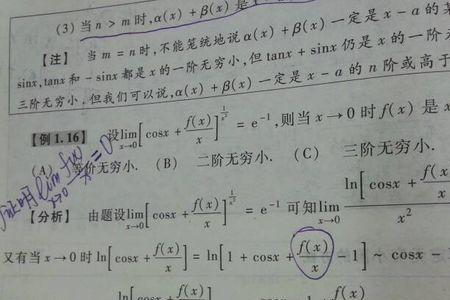 (3) 当 n > m 时, α(x) + β(x) 是
【注】 当 m = n 时, 不能笼统地说 α(x) + β(x) 一定是 x - a 的
sinx, tanx 和 - sinx 都是 x 的一阶无穷小, 但 tanx + sinx 仍是 x 的一阶
三阶无穷小, 但我们可以说, α(x) + β(x) 一定是 x - a 的 n 阶或高于
【例 1.16】 设 lim x→0 [cosx + f(x)/x]^(1/x²) = e⁻¹, 则当 x → 0 时 f(x) 是 x
(A) 等价无穷小. (B) 二阶无穷小. (C) 三阶无穷小.
lim x→0 f(x)/x = 0
【分析】 由题设 lim x→0 [cosx + f(x)/x]^(1/x²) = e⁻¹ 可知 lim x→0 ln[cosx + f(x)/x]/x²
又有当 x → 0 时 ln[cosx + f(x)/x] = ln[1 + cosx + f(x)/x - 1] ~ cosx -
ln[cosx + f(x)] f(x)